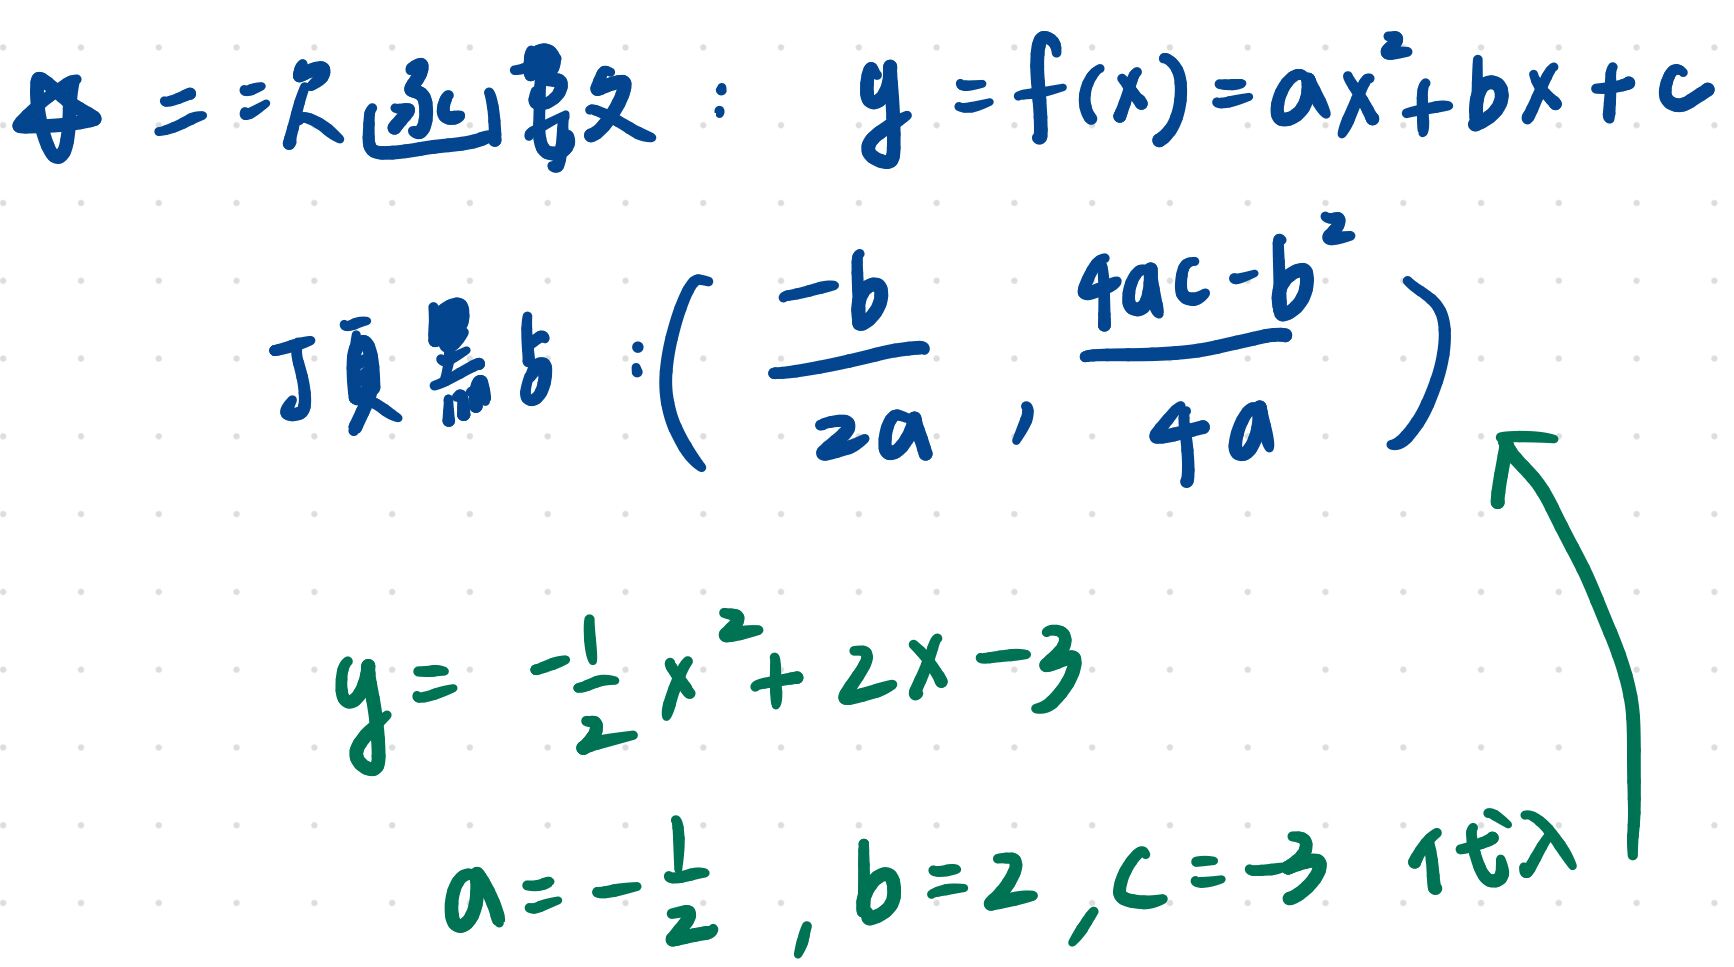 ☆ 二次函數： y = f(x) = ax² + bx + c
頂點：( -b/2a , 4ac-b²/4a )
y = -1/2 x² + 2x - 3
a = -1/2 , b = 2 , c = -3 代入